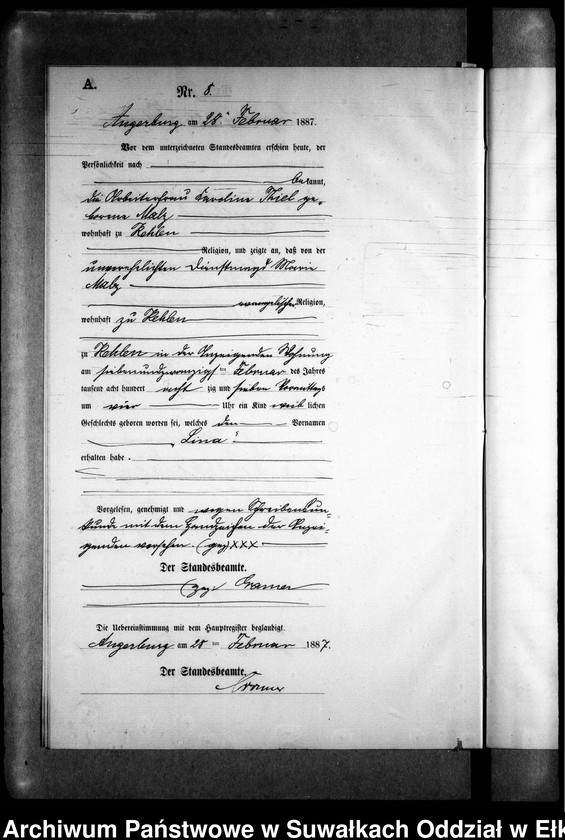 A.
Nr. 8.
Angerburg am 28ten Februar 1887.
Vor dem unterzeichneten Standesbeamten erschien heute, der
Persönlichkeit nach
bekannt,
die Arbeiterfrau Caroline Thiel ge-
borene Malz
wohnhaft zu Kehlen
Religion, und zeigte an, daß von der
unverehelichten Dienstmagd Marie
Malz
evangelischer Religion,
wohnhaft zu Kehlen
zu Kehlen in der Anzeigenden Wohnung
am siebenundzwanzigsten Februar des Jahres
tausend acht hundert acht zig und sieben Vormittags
um vier Uhr ein Kind weib lichen
Geschlechts geboren worden sei, welches den Vornamen
Lina
erhalten habe.
Vorgelesen, genehmigt und wegen Schreibensun-
kunde mit dem Handzeichen der Anzei-
genden versehen. (gez) XXX
Der Standesbeamte.
(gez. Cramer
Die Uebereinstimmung mit dem Hauptregister beglaubigt.
Angerburg am 28ten Februar 1887.
Der Standesbeamte.
Cramer
Archiwum Państwowe w Suwałkach Oddział w Ełk